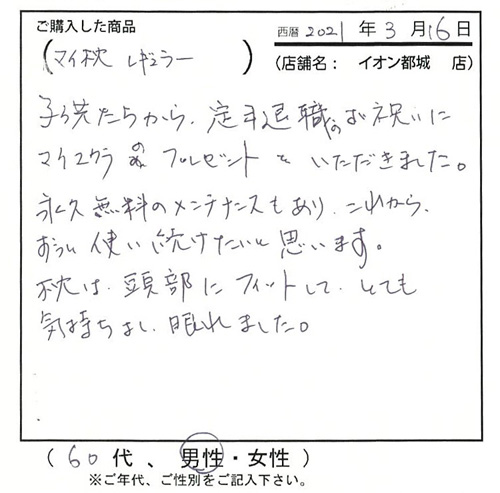 ご購入した商品
西暦 2021 年 3 月 16 日
(マイ枕 レギュラー)
(店舗名： イオン都城 店)
子供たちから、定年退職のお祝いに
マイマクラの プレゼントをいただきました。
永久無料のメンテナンスもあり、これから、
ずっと使い続けたいと思います。
枕は、頭部にフィットして、とても
気持ちよし、眠れました。
(60代、男性・女性)
※ご年代、ご性別をご記入下さい。